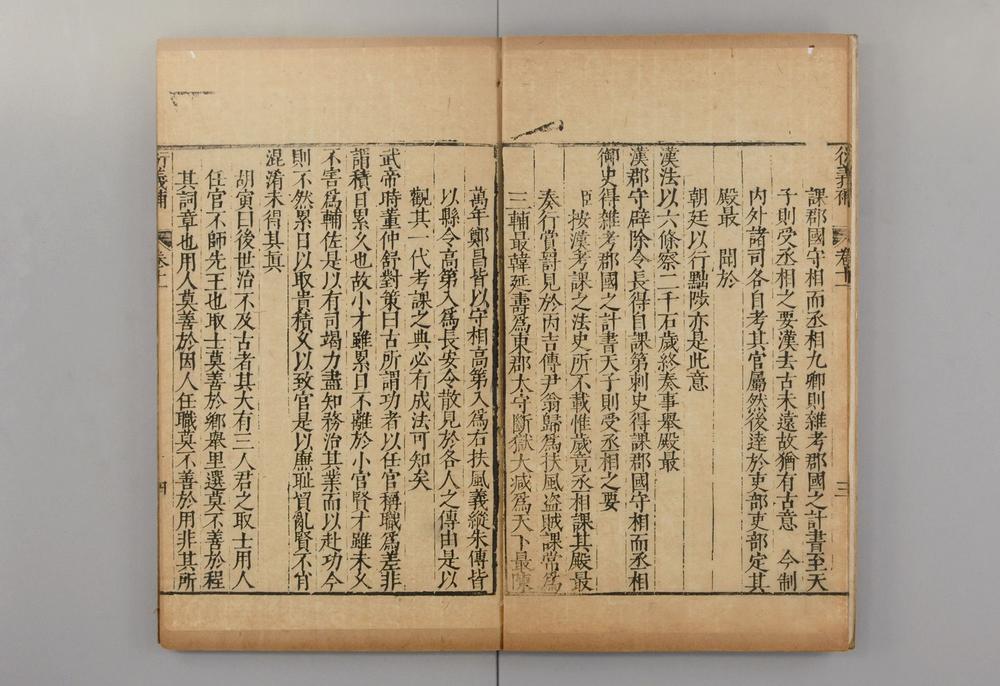 衍義補 卷十一 三
課郡國守相而丞相九卿則雜考郡國之計書至天
子則受丞相之要漢去古未遠故猶有古意 今制
內外諸司各自考其官屬然後達於吏部吏部定其
殿最 聞於
朝廷以行黜陟亦是此意
漢法以六條察二千石歲終奏事舉殿最
漢郡守辟除令長得自課第刺史得課郡國守相而丞相
御史得雜考郡國之計書天子則受丞相之要
臣按漢考課之法史所不載惟歲竟丞相課其殿最
奏行賞罰見於丙吉傳尹翁歸為扶風盜賊課常為
三輔最韓延壽為東郡太守斷獄大減為天下最陳
萬年鄭昌皆以守相高第入為右扶風義縱朱博皆
以縣令高第入為長安令散見於各人之傳由是以
觀其一代考課之典必有成法可知矣
武帝時董仲舒對策曰古所謂功者以任官稱職為差非
謂積日累久也故小才雖累日不離於小官賢才雖未久
不害為輔佐是以有司竭力盡知務治其業而以赴功今
則不然累日以取貴積久以致官是以廉耻貿亂賢不肖
混淆未得其真
胡寅曰後世治不及古者其大有三人君之取士用人
任官不師先王也取士莫善於鄉舉里選莫不善於程
其詞章也用人莫善於因人任職莫不善於用非其所
衍義補 卷十一 四